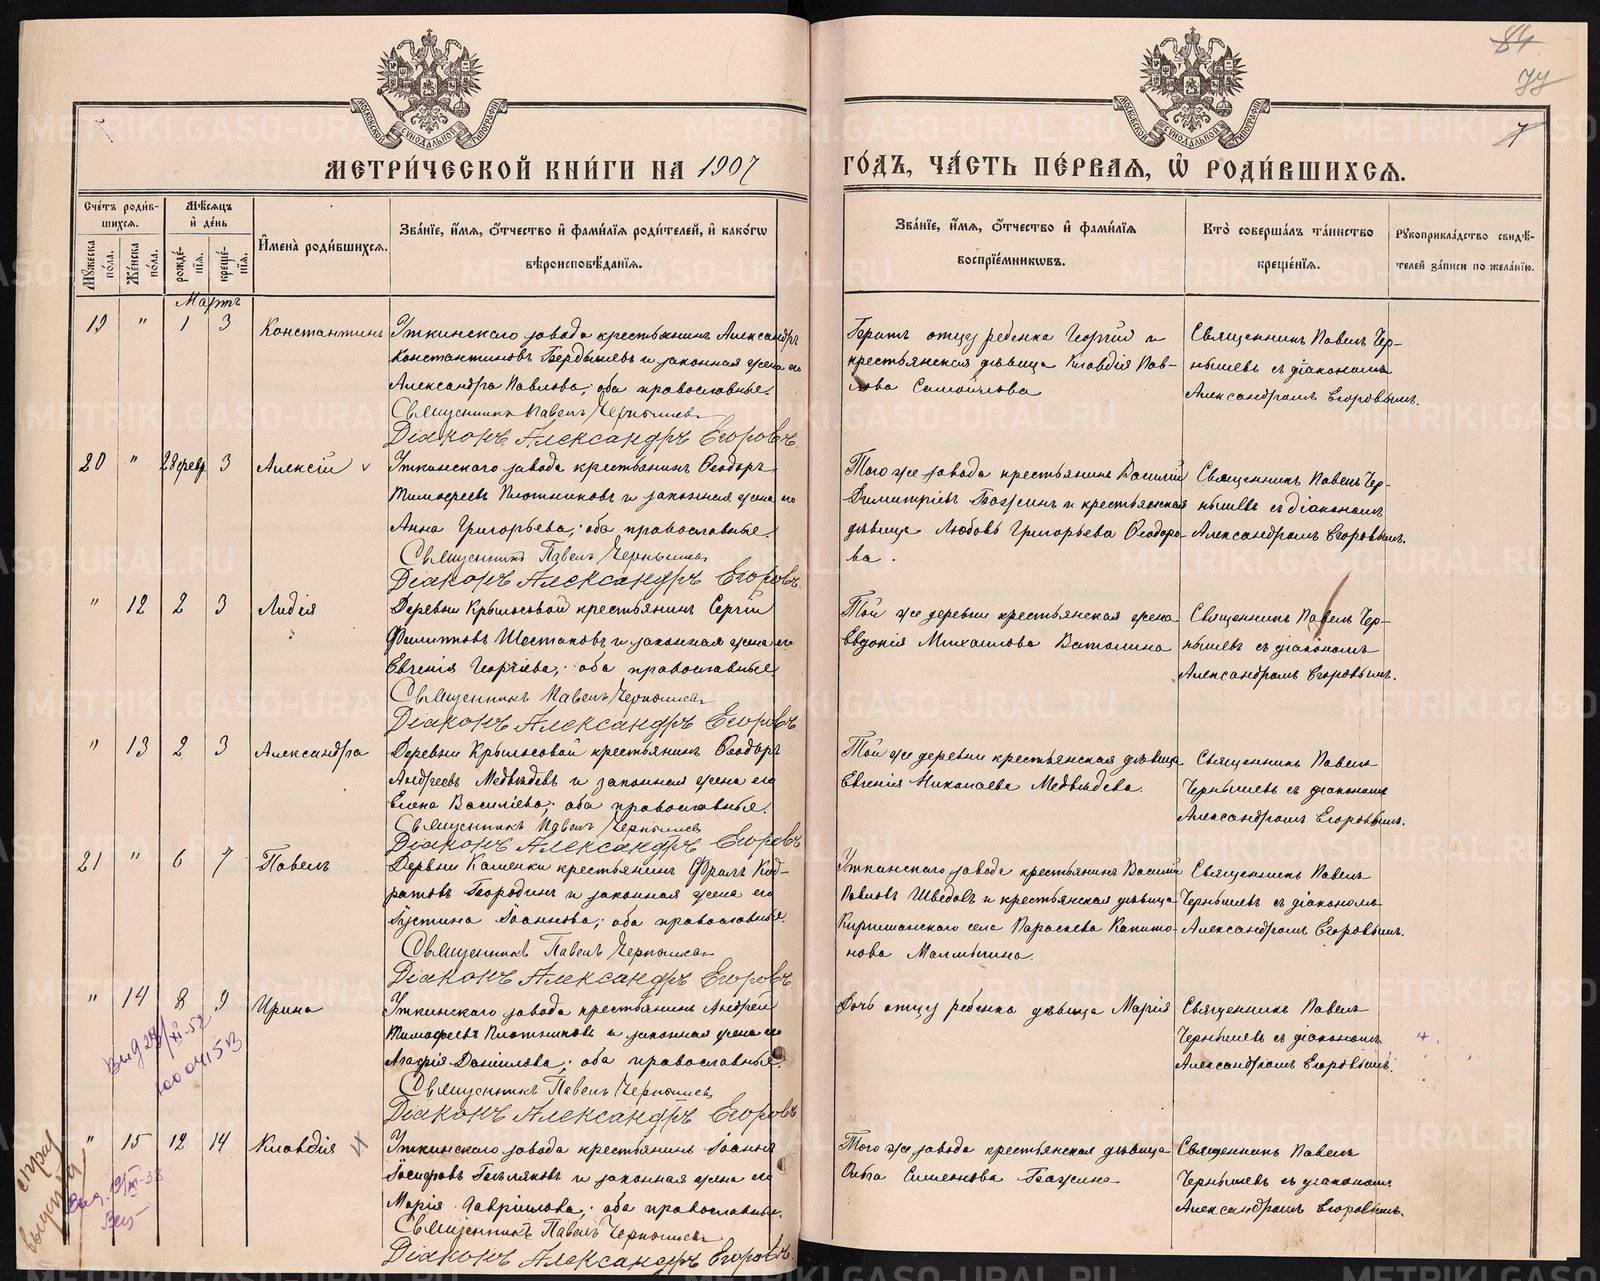 84
77
7
МЕТРИ́ЧЕСКОЙ КНИ́ГИ НА 1907
ГО́ДЪ, ЧА́СТЬ ПЕ́РВАѦ, Ѽ РОДИ́ВШИХСѦ.
Сче́тъ роди́в-
шихсѧ.
Мꙋжеска по́ла.
Же́нска по́ла.
Мѣ́сѧцъ
и҆ де́нь
рожде́-
нїѧ.
креще́-
нїѧ.
И҆мена̀ роди́вшихсѧ.
Зва́нїе, и҆́мѧ, о҆́тчество и҆ фами́лїѧ роди́телей, и҆ како́гѡ
вѣроисповѣ́данїѧ.
Зва́нїе, и҆́мѧ, о҆́тчество и҆ фами́лїѧ
воспрїе́мникѡвъ.
Кто̀ соверша́лъ та́инство
креще́нїѧ.
Рꙋкоприкла́дство свидѣ́-
телей за́писи по жела́нїю.
Мартъ
19 " 1 3 Константинъ
Уткинскаго завода крестьянинъ Александръ
Константиновъ Бердышевъ и законная жена его
Александра Павлова; оба православные.
Священникъ Павелъ Чернышевъ
Діаконъ Александръ Егоровъ
Братъ отцу ребенка Георгій и
крестьянская дѣвица Клавдія Пав-
лова Самойлова
Священникъ Павелъ Чер-
нышевъ съ діакономъ
Александромъ Егоровымъ.
20 " 28 февр. 3 Алексій
Уткинскаго завода крестьянинъ Ѳеодоръ
Тимофеевъ Плотниковъ и законная жена его
Анна Григорьева; оба православные.
Священникъ Павелъ Чернышевъ
Діаконъ Александръ Егоровъ
Того же завода крестьянинъ Василій
Димитріевъ Бажинъ и крестьянская
дѣвица Любовь Григорьева Ѳеодоро-
ва.
Священникъ Павелъ Чер-
нышевъ съ діакономъ
Александромъ Егоровымъ.
" 12 2 3 Лидія
Деревни Крылосовой крестьянинъ Сергій
Филипповъ Шестаковъ и законная жена его
Евгенія Георгіева; оба православные
Священникъ Павелъ Чернышевъ
Діаконъ Александръ Егоровъ
Той же деревни крестьянская жена
Евдокія Михайлова Ватолина
Священникъ Павелъ Чер-
нышевъ съ діакономъ
Александромъ Егоровымъ.
" 13 2 3 Александра
Деревни Крылосовой крестьянинъ Ѳеодоръ
Андреевъ Медвѣдевъ и законная жена его
Елена Василіева; оба православные.
Священникъ Павелъ Чернышевъ
Діаконъ Александръ Егоровъ
Той же деревни крестьянская дѣвица
Евгенія Николаева Медвѣдева.
Священникъ Павелъ
Чернышевъ съ діакономъ
Александромъ Егоровымъ.
21 " 6 7 Павелъ
Деревни Каменки крестьянинъ Фролъ Код-
ратовъ Бородинъ и законная жена его
Іустина Іоаннова; оба православные.
Священникъ Павелъ Чернышевъ
Діаконъ Александръ Егоровъ
Уткинскаго завода крестьянинъ Василій
Павловъ Шведовъ и крестьянская дѣвица
Киришанскаго села Параскева Капито-
нова Малмыгина.
Священникъ Павелъ
Чернышевъ съ діакономъ
Александромъ Егоровымъ.
" 14 8 9 Ирина
Уткинскаго завода крестьянинъ Андрей
Тимофеевъ Плотниковъ и законная жена его
Агафія Даніилова; оба православные.
Священникъ Павелъ Чернышевъ
Діаконъ Александръ Егоровъ
Дочь отцу ребенка дѣвица Марія
Священникъ Павелъ
Чернышевъ съ діакономъ
Александромъ Егоровымъ.
" 15 12 14 Клавдія
Уткинскаго завода крестьянинъ Іоаннъ
Іосифовъ Бѣляковъ и законная жена его
Марія Гавріилова; оба православные.
Священникъ Павелъ Чернышевъ
Діаконъ Александръ Егоровъ
Того же завода крестьянская дѣвица
Ольга Симеонова Бажина
Священникъ Павелъ
Чернышевъ съ діакономъ
Александромъ Егоровымъ.